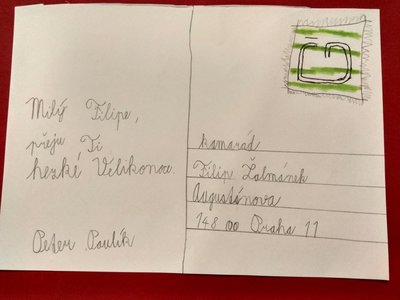 Milý Filipe,
přeju Ti
hezké Velikonoce.
Peter Paulík
kamarád
Filip Žalmánek
Augustinova
148 00 Praha 11